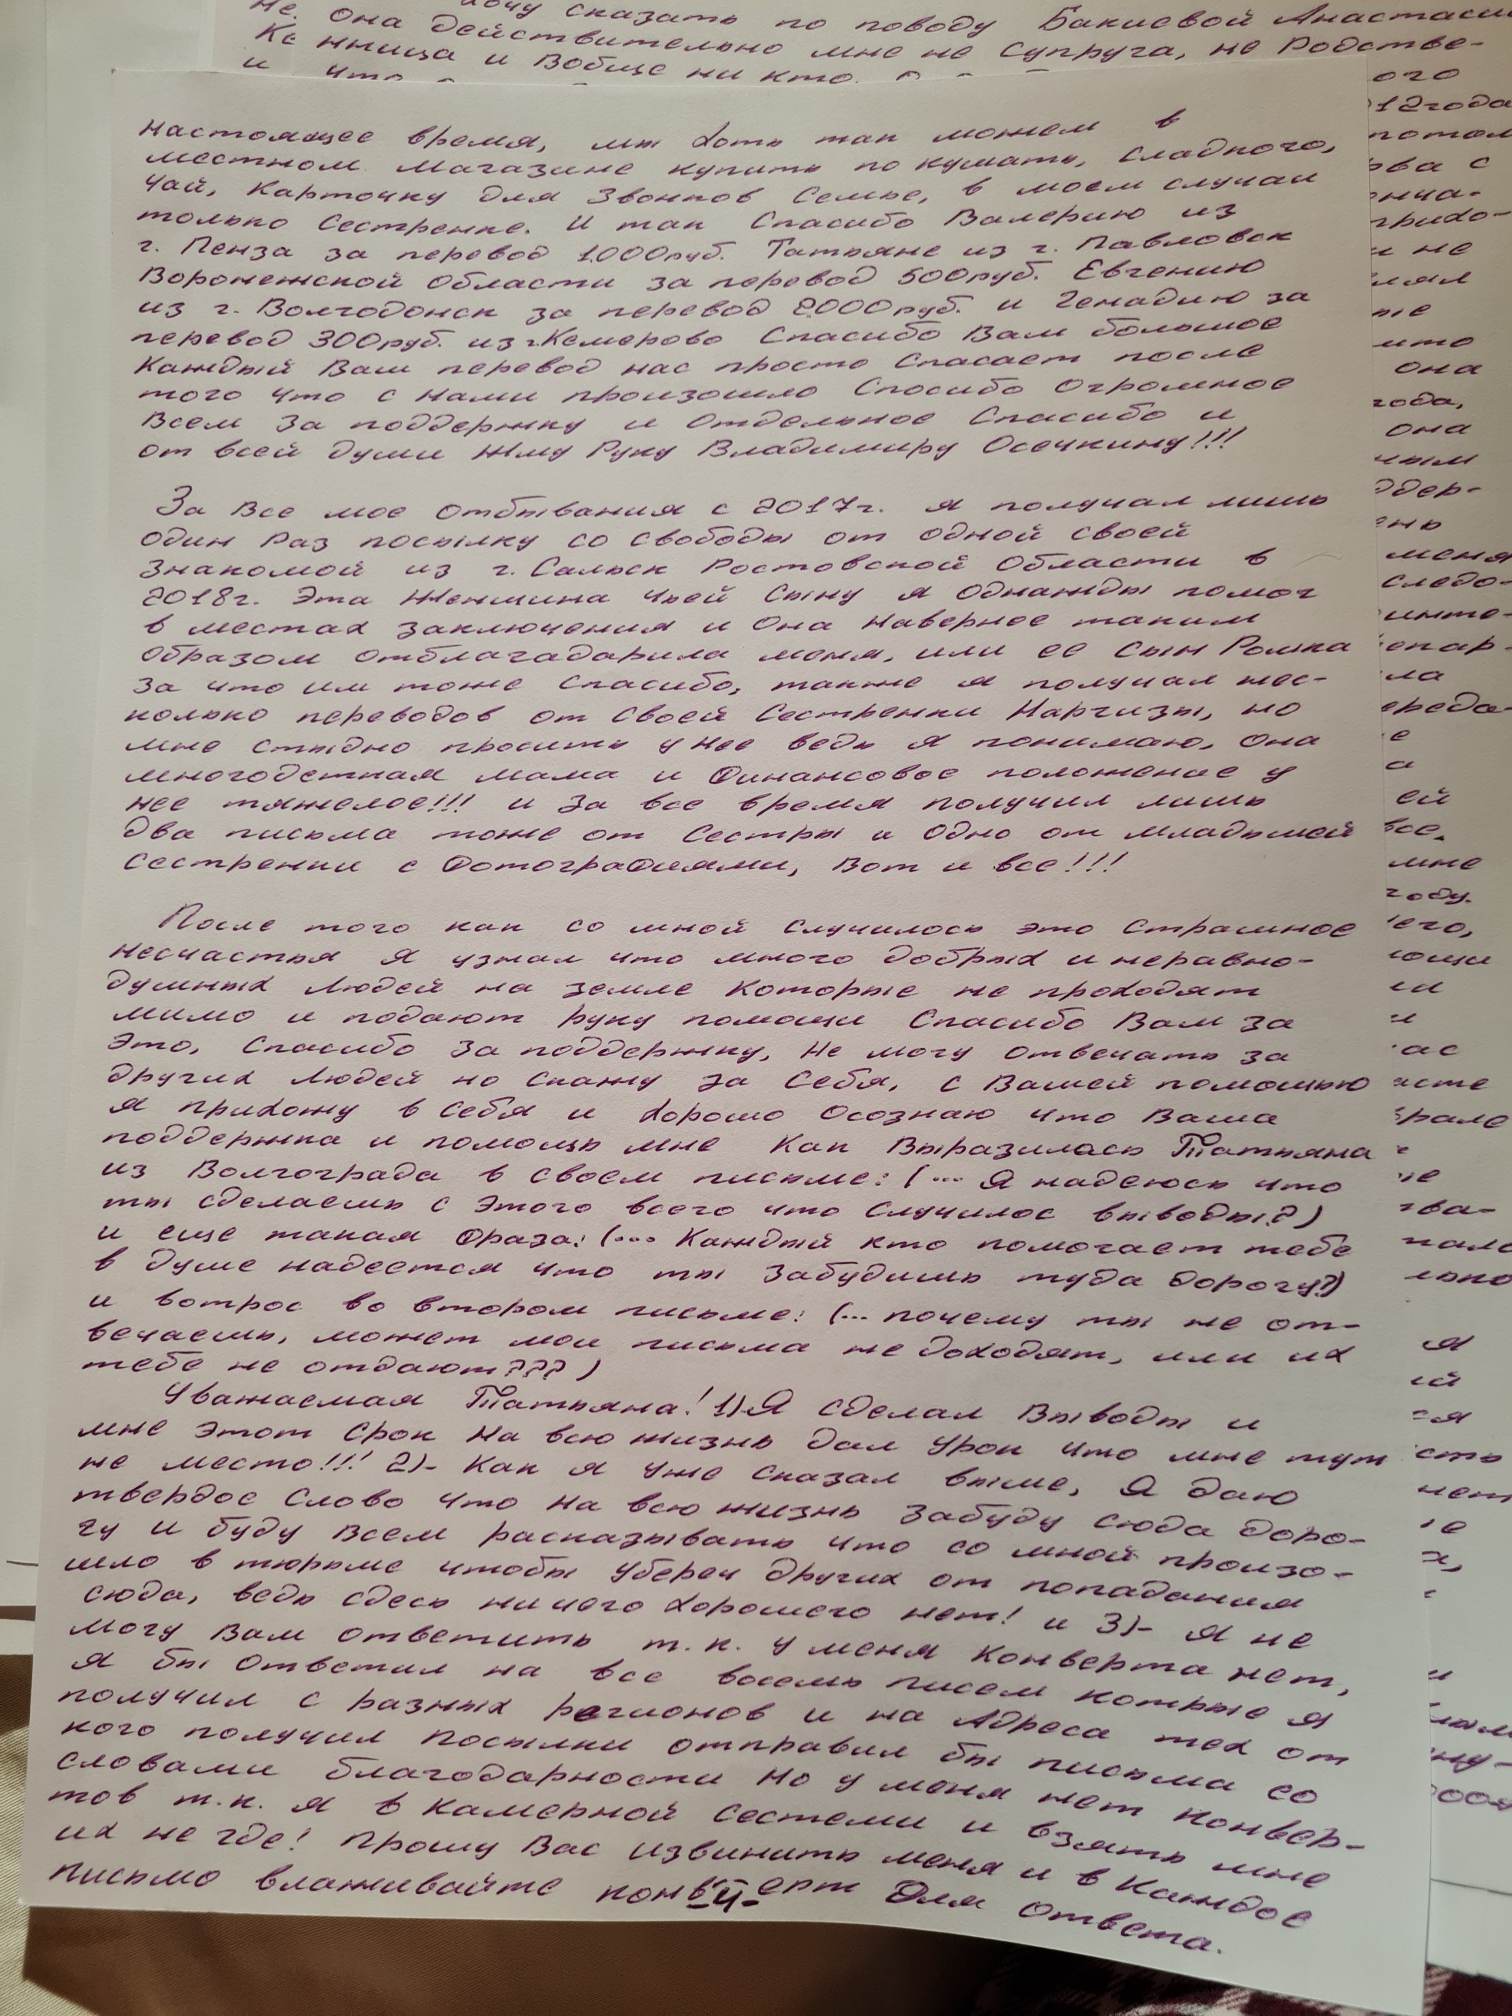 хочу сказать по поводу Бакиевой Анастаси
не. Она действительно мне не супруга, не Родстве-
нница и Вобще ни кто.
ого
12года
потом
ова с
нча-
прихо-
и не
она
года,
она
ным
ддер-
меня
следо-
инте-
епар-
ла
ереда-
е
а
ей
все.
мне
году.
его,
настоящее время, мы хоть так можем в
местном магазине купить покушать, сладкого,
чай, карточку для звонков семье, в моем случаи
только Сестренке. И так Спасибо Валерию из
г. Пенза за перевод 1000руб. Татьяне из г. Павловск
Воронежской Области за перевод 500руб. Евгению
из г. Волгодонск за перевод 2000руб. и Генадию за
перевод 300руб. из г.Кемерово Спасибо Вам большое
Каждый Ваш перевод нас просто Спасает после
того что с нами произошло Спосибо Огромное
Всем За поддержку и Отдельное Спасибо и
от всей души Жму Руку Владимиру Осечкину!!!
За Все мое Отбывания с 2017г. я получал лишь
Один Раз посылку со свободы от одной своей
Знакомой из г. Сальск Ростовской Области в
2018г. Эта Женщина чьей Сыну я Однажды помог
в местах заключения и Она Наверное таким
Образом отблагадарила меня, или ее Сын Ромка
За что им тоже Спасибо, также я получал нес-
колько переводов от Своей Сестренки Наргизы, но
мне стыдно просить у нее ведь я понимаю, Она
многодетная мама и Финансовое положение у
нее тяжелое!!! и За все время получил лишь
Два письма тоже от Сестры и Одно от младьшей
Сестренки с Фотографиями, Вот и все!!!
После того как со мной Случилось это Страшное
Несчастья Я узнал что много Добрых и неравно-
душных Людей на земле Которые не проходят
мимо и подают руку помощи Спасибо Вам за
Это, Спасибо За поддержку, Не могу отвечать за
других Людей но Скажу за Себя, с Вашей помощью
я прихожу в себя и хорошо Осознаю что Ваша
поддержка и помощь мне Как Выразилась Татьяна
из Волгограда в своем письме: (... Я надеюсь что
ты сделаешь с Этого всего что Случилос выводы?)
и еще такая Фраза: (... Каждый кто помогает тебе
в Душе надеется что ты Забудишь туда Дорогу?)
и вотрос во втором письме: (... почему ты не от-
вечаешь, может мои письма не доходят, или их
тебе не отдают???)
Уважаемая Татьяна! 1)-Я Сделал Выводы и
мне Этот Срок На всю жизнь Дал Урок что мне тут
не место!!! 2)- Как я уже Сказал выше, Я даю
твердое Слово что На всю жизнь Забуду Сюда Доро-
гу и буду Всем расказывать что со мной произо-
шло в тюрьме чтобы Уберечь Других от попадания
сюда, ведь сдесь ничего хорошего нет! и 3)- Я не
могу Вам ответить т.к. у меня Конверта нет,
я бы Ответил на все восемь писем котрые я
получил с разных регионов и на Адреса тех от
кого получил Посылки отправил бы письма со
словами благодарности Но у меня нет Конвер-
тов т.к. я в Камерной Сестеми и взять мне
их не где! Прошу Вас извинить меня и в Каждое
Письмо влаживайте конверт Для Ответа.
-4-